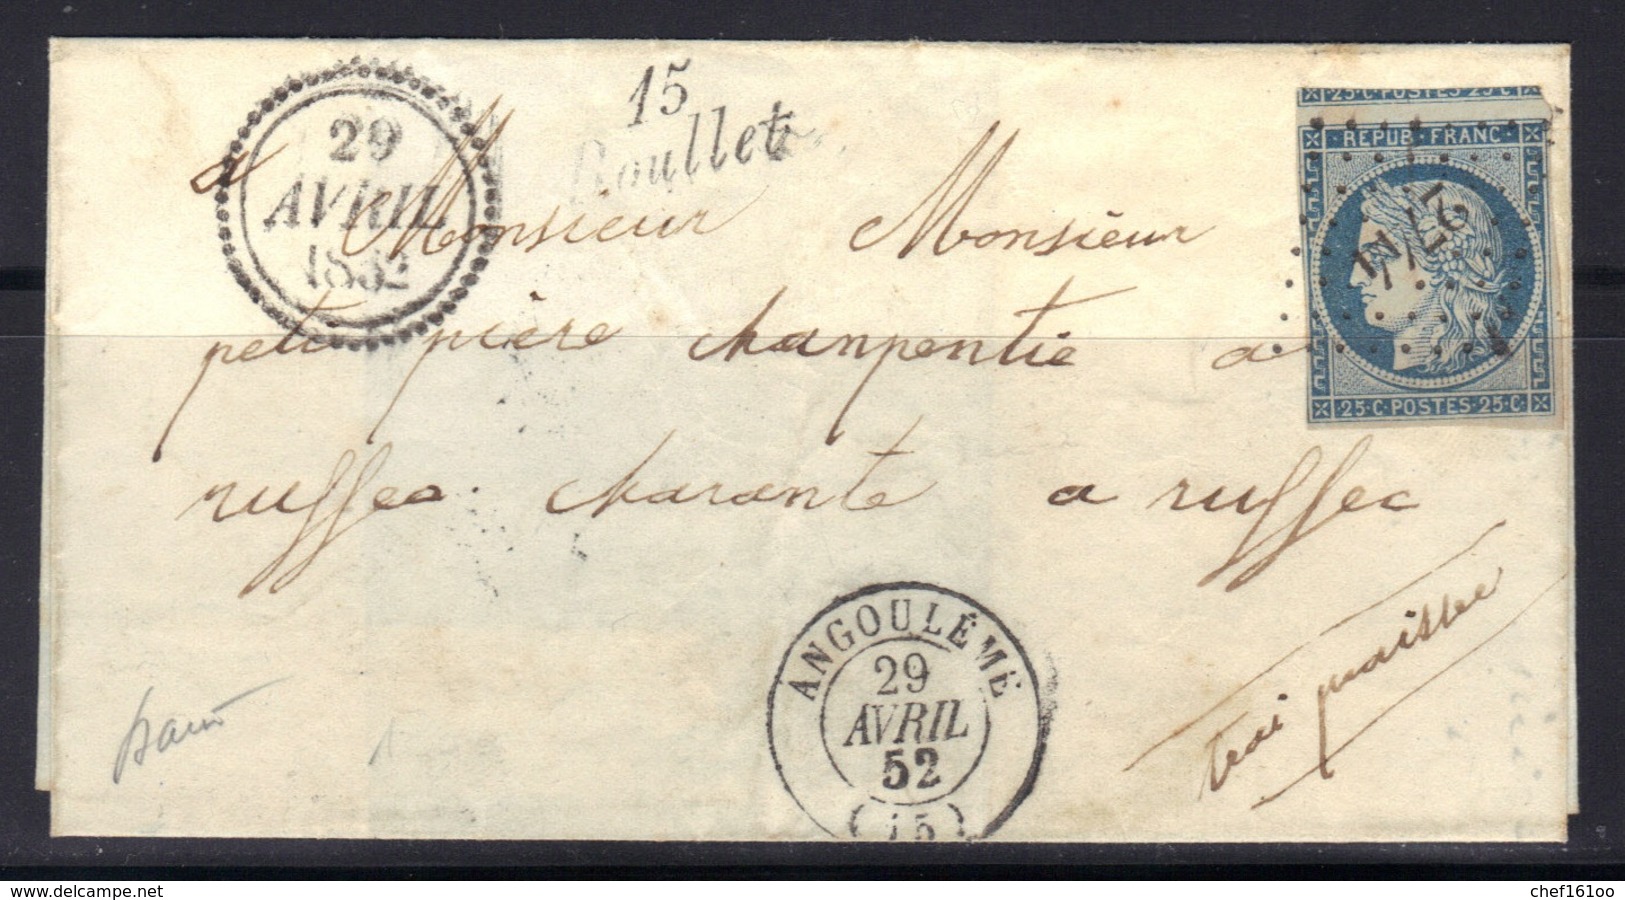 29
AVRIL
1852
15
Roullet
25·C·POSTES·25·C
REPUB·FRANC·
25·C·POSTES·25·C·
a Monsieur Monsieur
petit pière charpentie a
ruffec charante a ruffec
ANGOULÊME
29
AVRIL
52
(15)
delcampe.net
chef16100